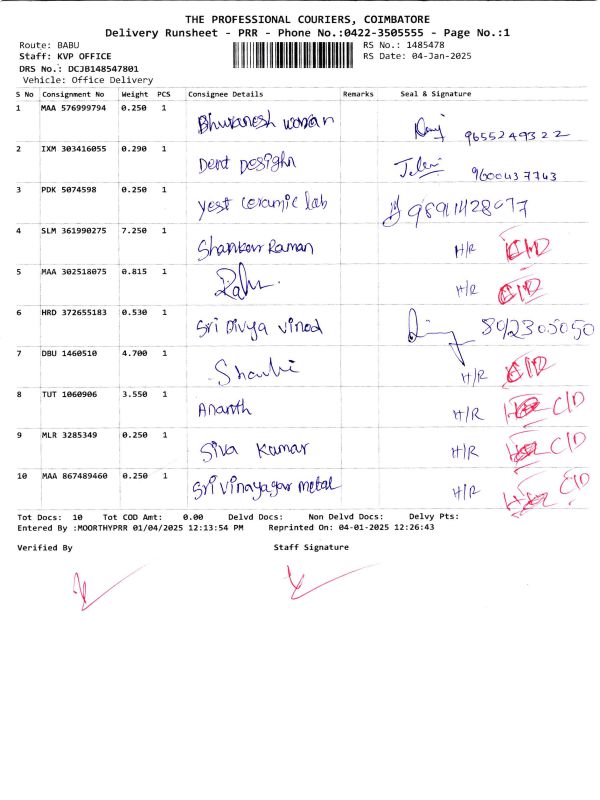 THE PROFESSIONAL COURIERS, COIMBATORE
Delivery Runsheet - PRR - Phone No.:0422-3505555 - Page No.:1
Route: BABU RS No.: 1485478
Staff: KVP OFFICE RS Date: 04-Jan-2025
DRS No.: DCJB148547801
Vehicle: Office Delivery
S No Consignment No Weight PCS Consignee Details Remarks Seal & Signature
1 MAA 576999794 0.250 1 Bhuvanesh 9655249322
2 IXM 303416055 0.290 1 Dent 9600437743
3 PDK 5074598 0.250 1 yest ceramic lab
4 SLM 361990275 7.250 1 Shankar Raman H/R
5 MAA 302518075 0.815 1 H/R
6 HRD 372655183 0.530 1 Sri Divya vinod
7 DBU 1460510 4.700 1 H/R
8 TUT 1060906 3.550 1 Ananth H/R C/D
9 MLR 3285349 0.250 1 Siva Kumar H/R C/D
10 MAA 867489460 0.250 1 Sri vinayagar metal H/R C/D
Tot Docs: 10 Tot COD Amt: 0.00 Delvd Docs: Non Delvd Docs: Delvy Pts:
Entered By :MOORTHYPRR 01/04/2025 12:13:54 PM Reprinted On: 04-01-2025 12:26:43
Verified By Staff Signature